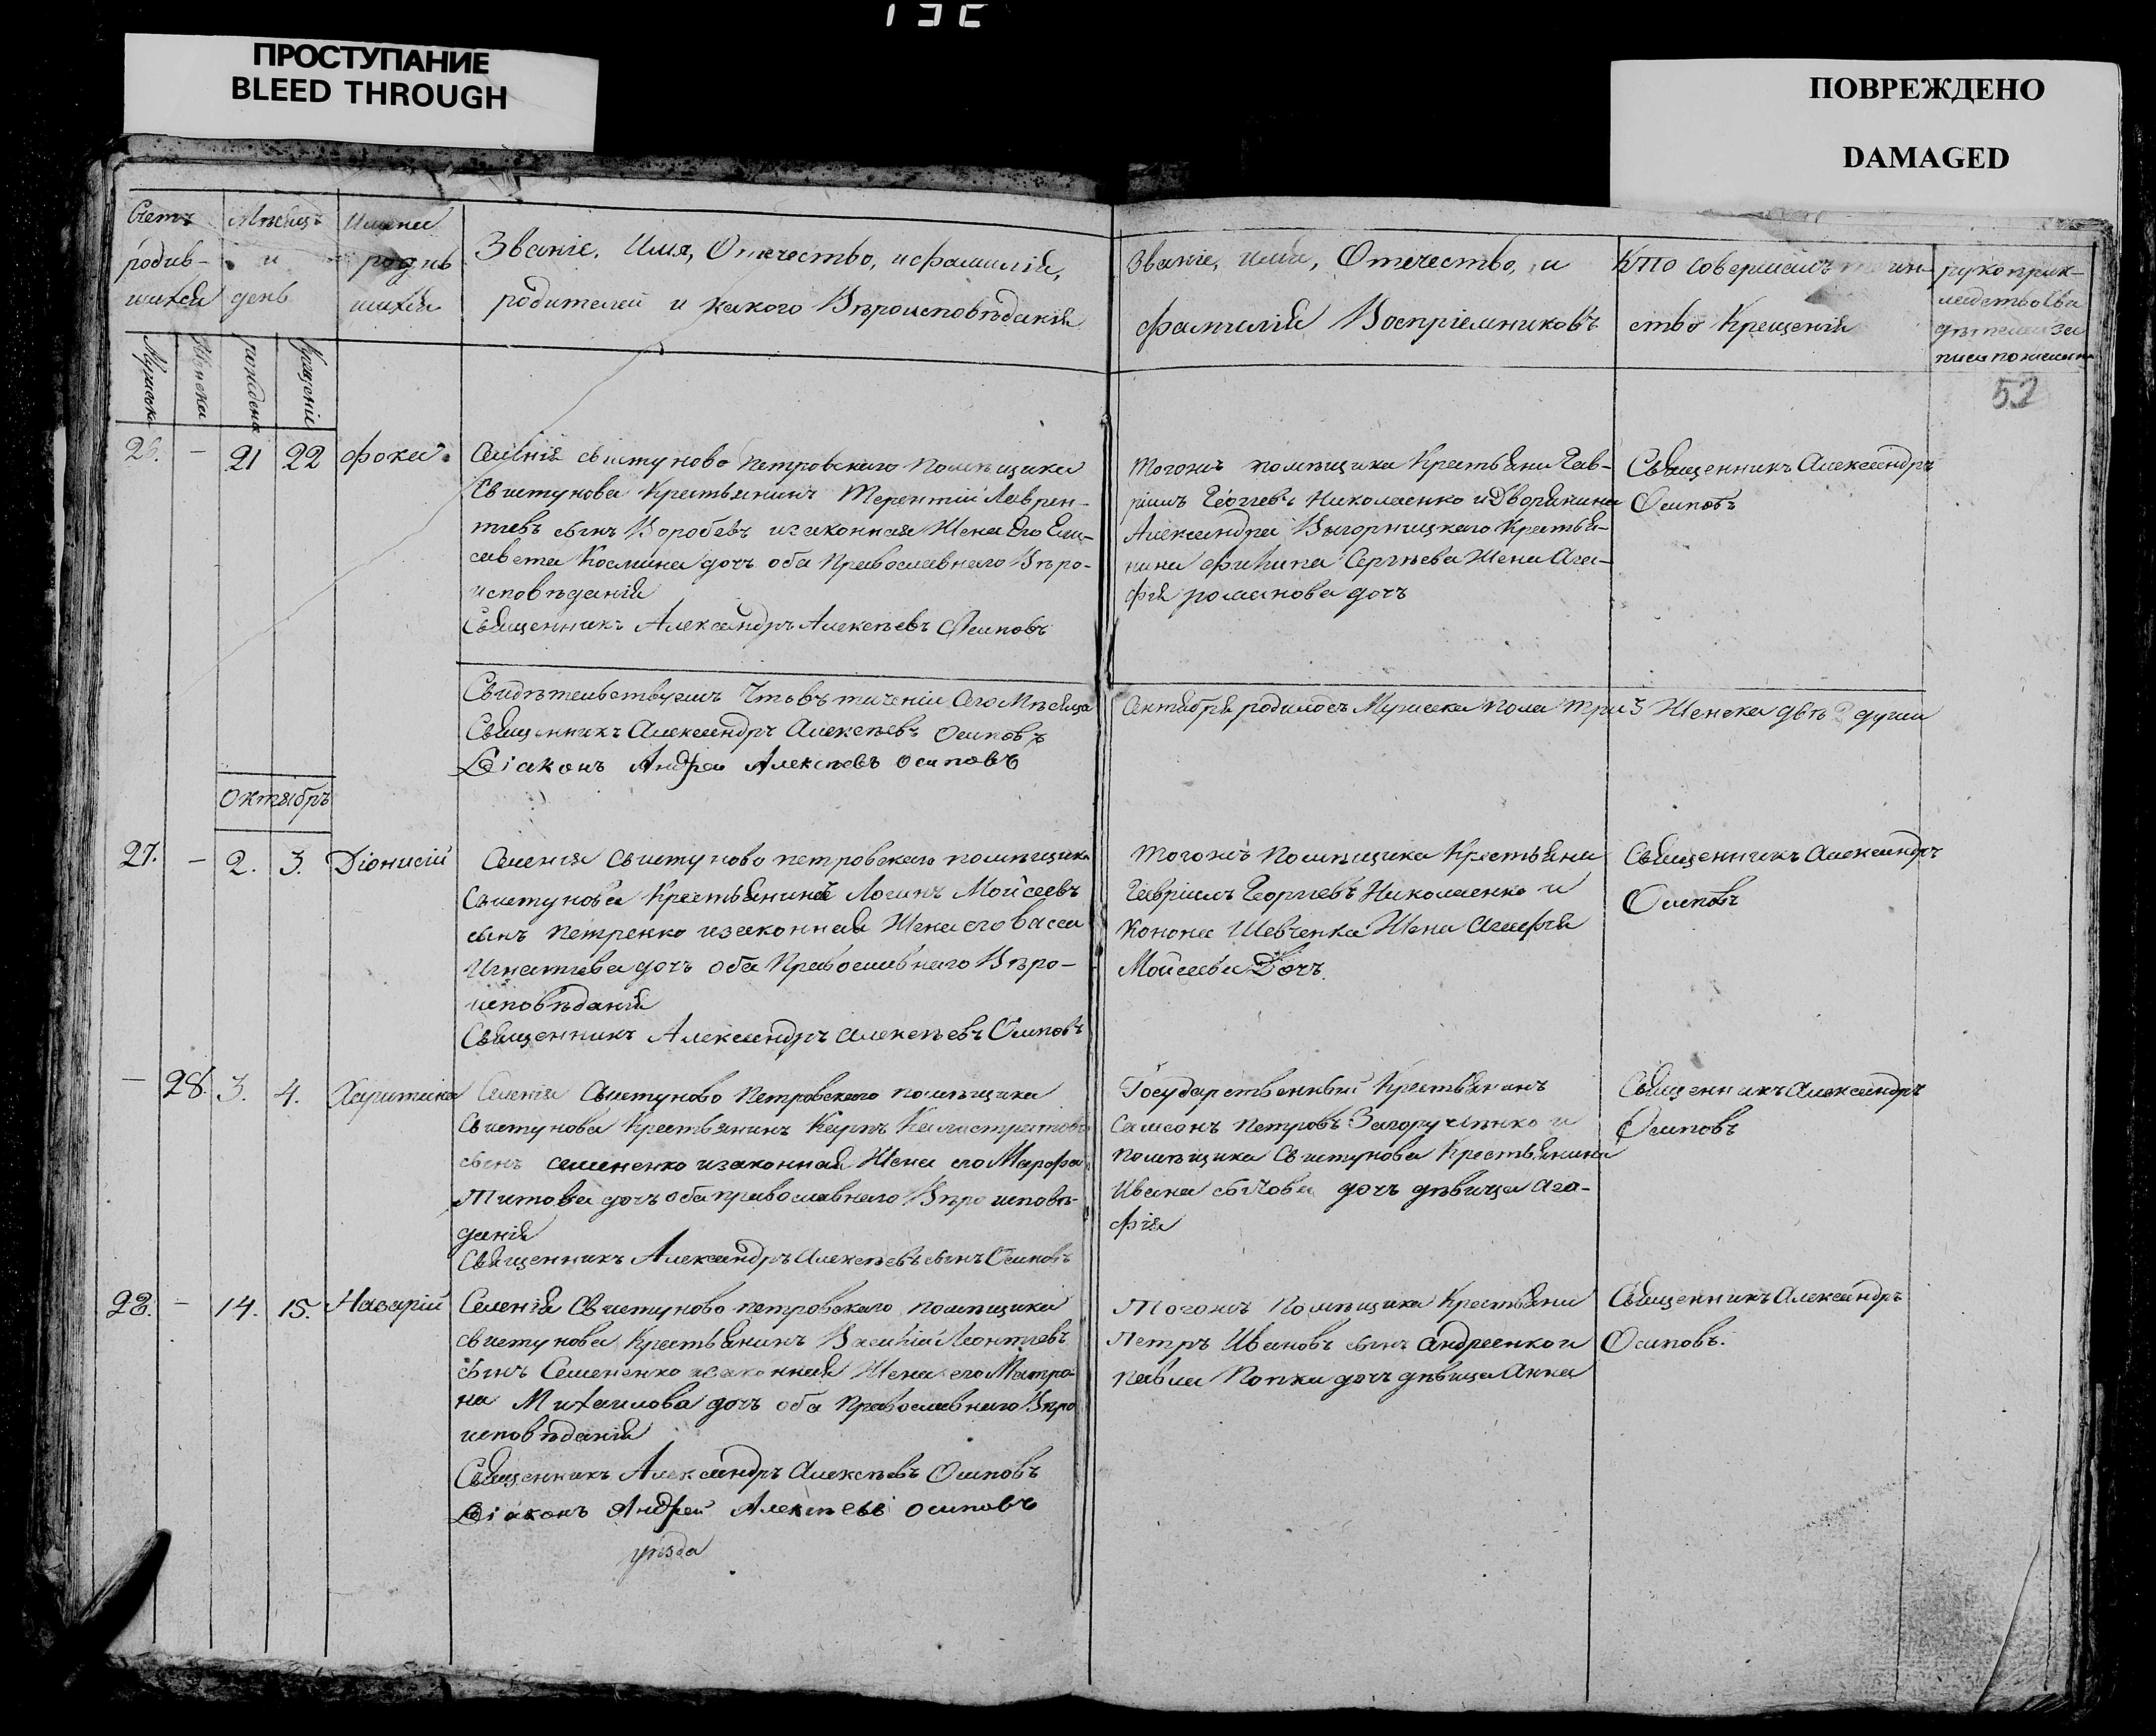 ПРОСТУПАНИЕ
BLEED THROUGH
ПОВРЕЖДЕНО
DAMAGED
Счетъ
родив-
шихся
Мѣсяцъ
и
день
Имена
родив
шихся
Званіе, Имя, Отечество, и фамилія,
родителей и какого Вѣроисповѣданія
Званіе, имя, Отечество, и
фамилія Воспріемниковъ
Кто совершилъ таин-
ство Крещенія
рукоприк-
ладство сви
дѣтелей за
писи по желанію
Мужеска
Женска
рожденія
крещенія
52
26. - 21 22 Фока
Селенія Свистуново Петровскаго помѣщика
Свистунова Крестьянинъ Терентій Лаврен-
тіевъ сынъ Воробевъ изаконная Жена Его Ели-
савета Космина дочъ оба Православнаго Вѣро-
исповѣданія
Священникъ Александръ Алексѣевъ Осиповъ
Тогожъ помѣщика Крестьяни Гав-
ріилъ Георгіевъ Николаенко и Дворянина
Александра Выгорницкаго Крестья-
нина Филипа Сергѣева Жена Ага-
фія романова дочъ
Священникъ Александръ
Осиповъ
Свидѣтельствуемъ Что въ теченіи Сего Мѣсяца
Сентября родилось Мужеска пола три 3 Женска двѣ 2 души
Священникъ Александръ Алексѣевъ Осиповъ
Діаконъ Андрей Алексѣевъ Осиповъ
Октябрь
27. - 2. 3. Діонисій
Селенія Свистуново петровскаго помѣщика
Свистунова Крестьянинъ Логинъ Мойсеевъ
сынъ Петренко изаконная Жена его Васса
Игнатіева дочъ оба Православнаго Вѣро-
исповѣданія
Священникъ Александръ Алексѣевъ Осиповъ
Тогожъ Помѣщика Крестьяни
Гавріилъ Георгіевъ Николаенко и
Конона Шевченка Жена Агафія
Мойсеева Дочъ
Священникъ Александръ
Осиповъ
- 28. 3. 4. Харитина
Селенія Свистуново Петровскаго помѣщика
Свистунова Крестьянинъ Карпъ Калистратовъ
сынъ семененко изаконная Жена его Марфа
Титова дочъ оба православнаго Вѣро исповѣ-
данія
Священникъ Александръ Алексѣевъ сынъ Осиповъ
Государственный Крестьянинъ
Самсонъ Петровъ Загорученко и
помѣщика Свистунова Крестьянина
Ивана дочъ дѣвица Ага-
фія
Священникъ Александръ
Осиповъ
28. - 14. 15. Назарій
Селенія Свистуново петровскаго помѣщика
свистунова Крестьянинъ Василій Леонтіевъ
сынъ Семененко изаконная Жена его Матро-
на Михаилова дочъ оба Православнаго Вѣро
исповѣданія
Священникъ Александръ Алексѣевъ Осиповъ
Діаконъ Андрей Алексѣевъ осиповъ
уѣзда
Тогожъ Помѣщика Крестьяни
Петръ Ивановъ сынъ андреенко и
павла Попки дочъ дѣвица Анна
Священникъ Александръ
Осиповъ.